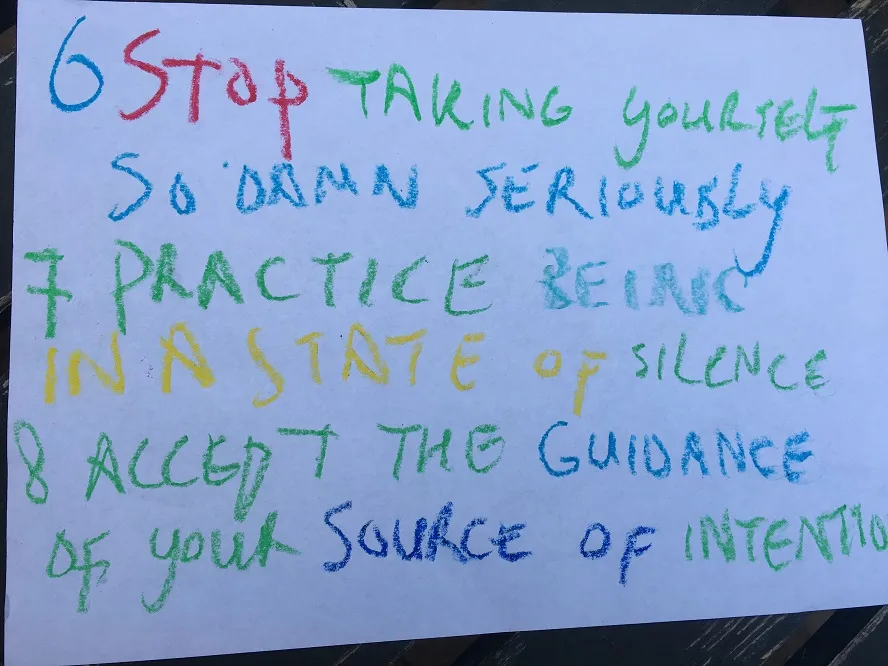 6 STOP TAKING YOURSELF
SO DAMN SERIOUSLY
7 PRACTICE BEING
IN A STATE OF SILENCE
8 ACCEPT THE GUIDANCE
OF YOUR SOURCE OF INTENTIO